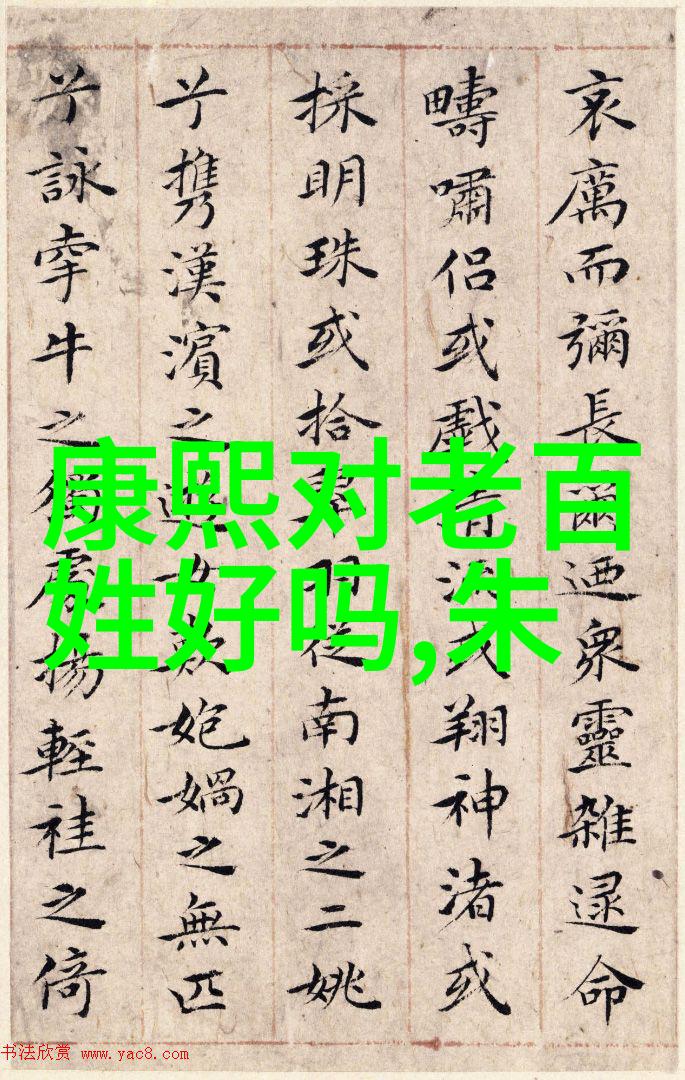 哀厲而彌長爾迺衆靈雜遝命
疇嘯侶或戲清流或翔神渚或
採明珠或拾翠羽從南湘之二姚
兮携漢濱之遊女歎媧之無匹
兮詠牽牛之獨處揚輕袿之倚
康熙对老百
姓好吗,朱
书法欣赏 www.yac8.com